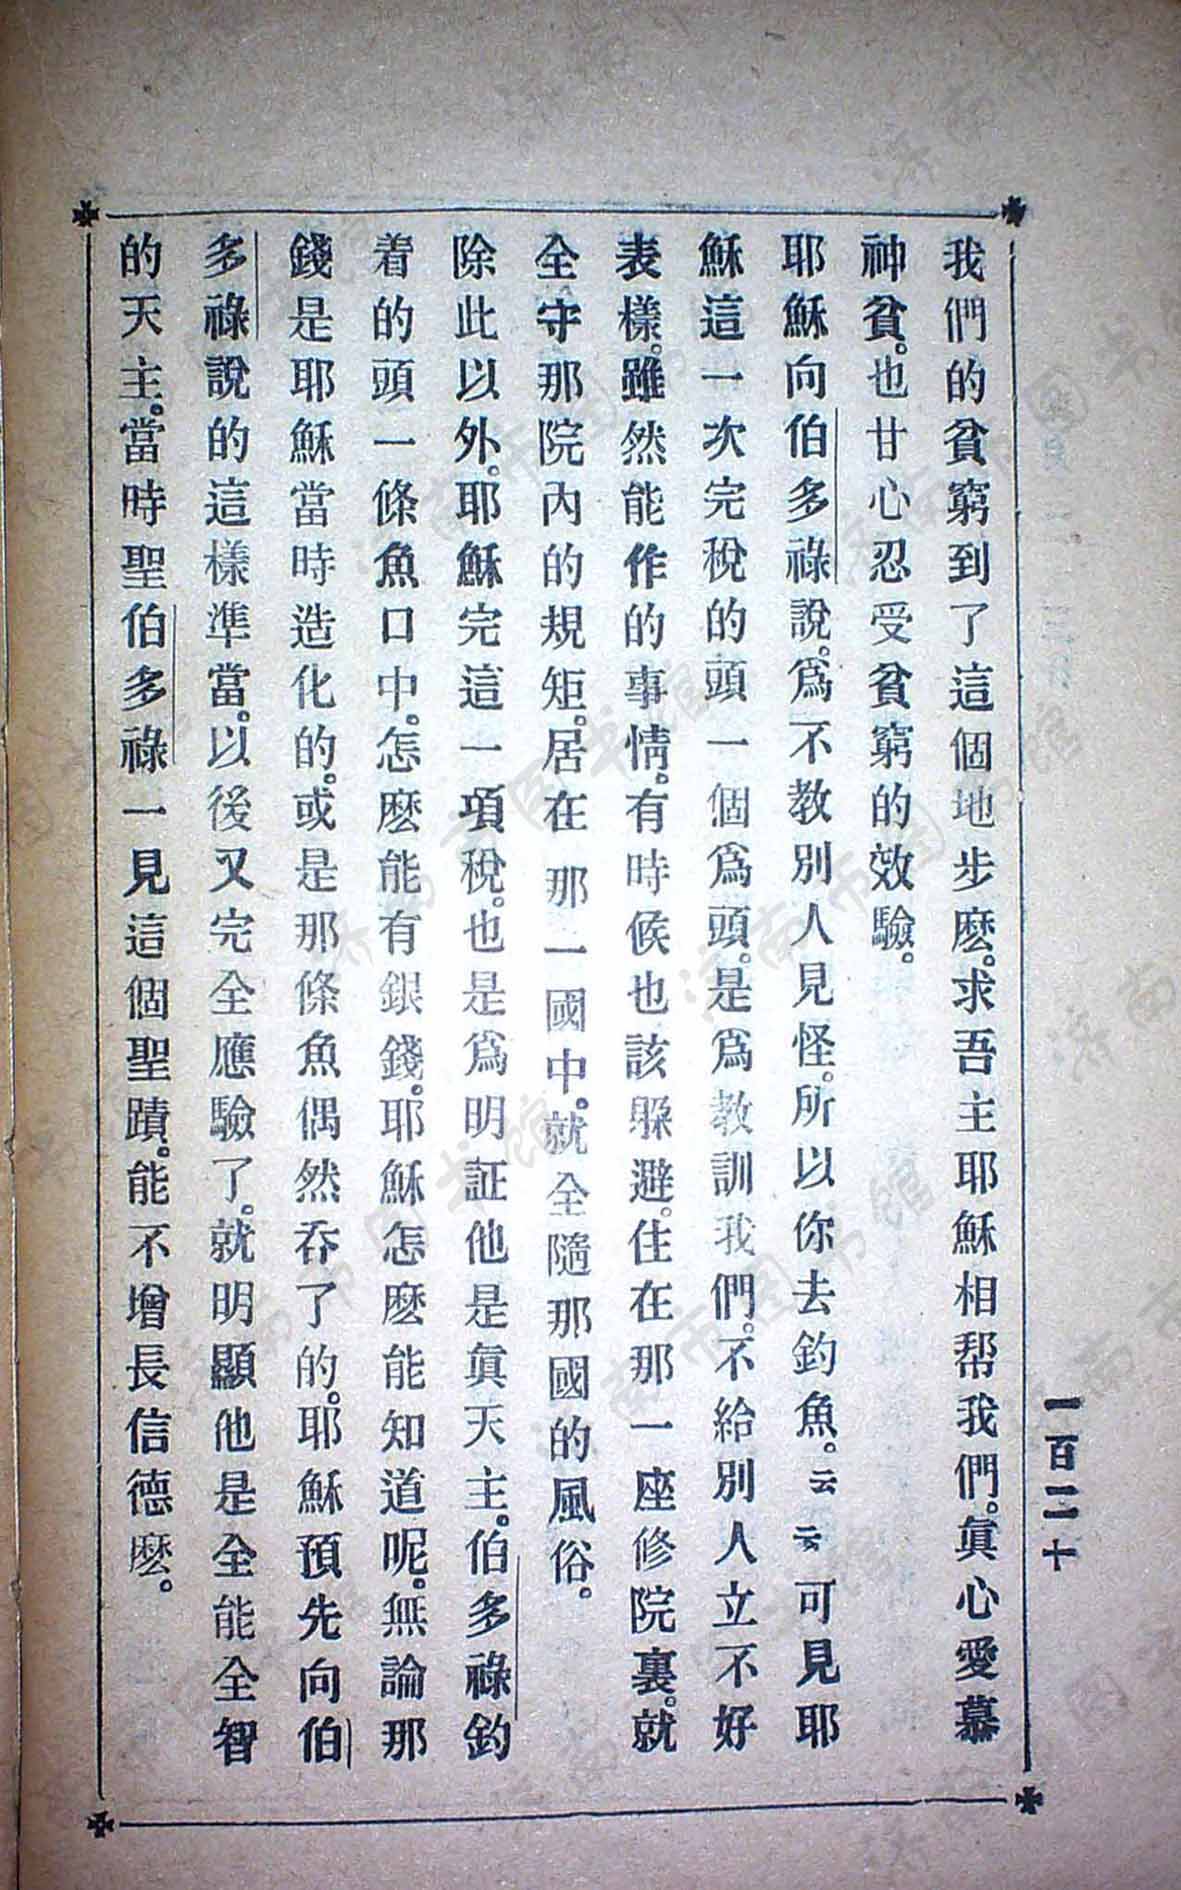 一百二十
我們的貧窮到了這個地步麽。求吾主耶穌相帮我們。眞心愛慕
神貧。也甘心忍受貧窮的效驗。
耶穌向伯多祿說。爲不教別人見怪。所以你去釣魚。云云可見耶
穌這一次完稅的頭一個爲頭。是爲教訓我們。不給別人立不好
表樣。雖然能作的事情。有時候也該躱避。住在那一座修院裏。就
全守那院內的規矩。居在那一國中。就全隨那國的風俗。
除此以外。耶穌完這一項稅。也是爲明証他是眞天主。伯多祿釣
着的頭一條魚口中。怎麽能有銀錢。耶穌怎麽能知道呢。無論那
錢是耶穌當時造化的。或是那條魚偶然吞了的。耶穌預先向伯
多祿說的這樣準當。以後又完全應驗了。就明顯他是全能全智
的天主。當時聖伯多祿一見這個聖蹟。能不增長信德麽。
济南市图书馆